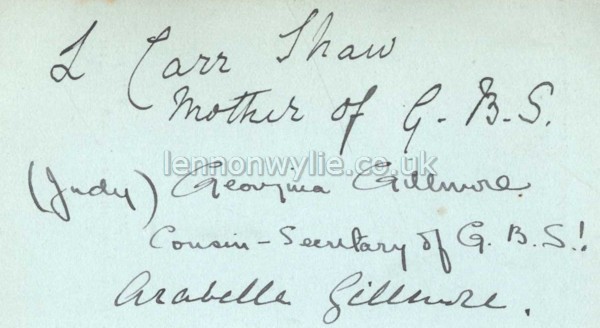 L Carr Shaw
Mother of G. B. S.
lennonwylie.co.uk
(Judy) Georgina Gillmore.
Cousin-Secretary of G. B. S!.
Arabella Gillmore.